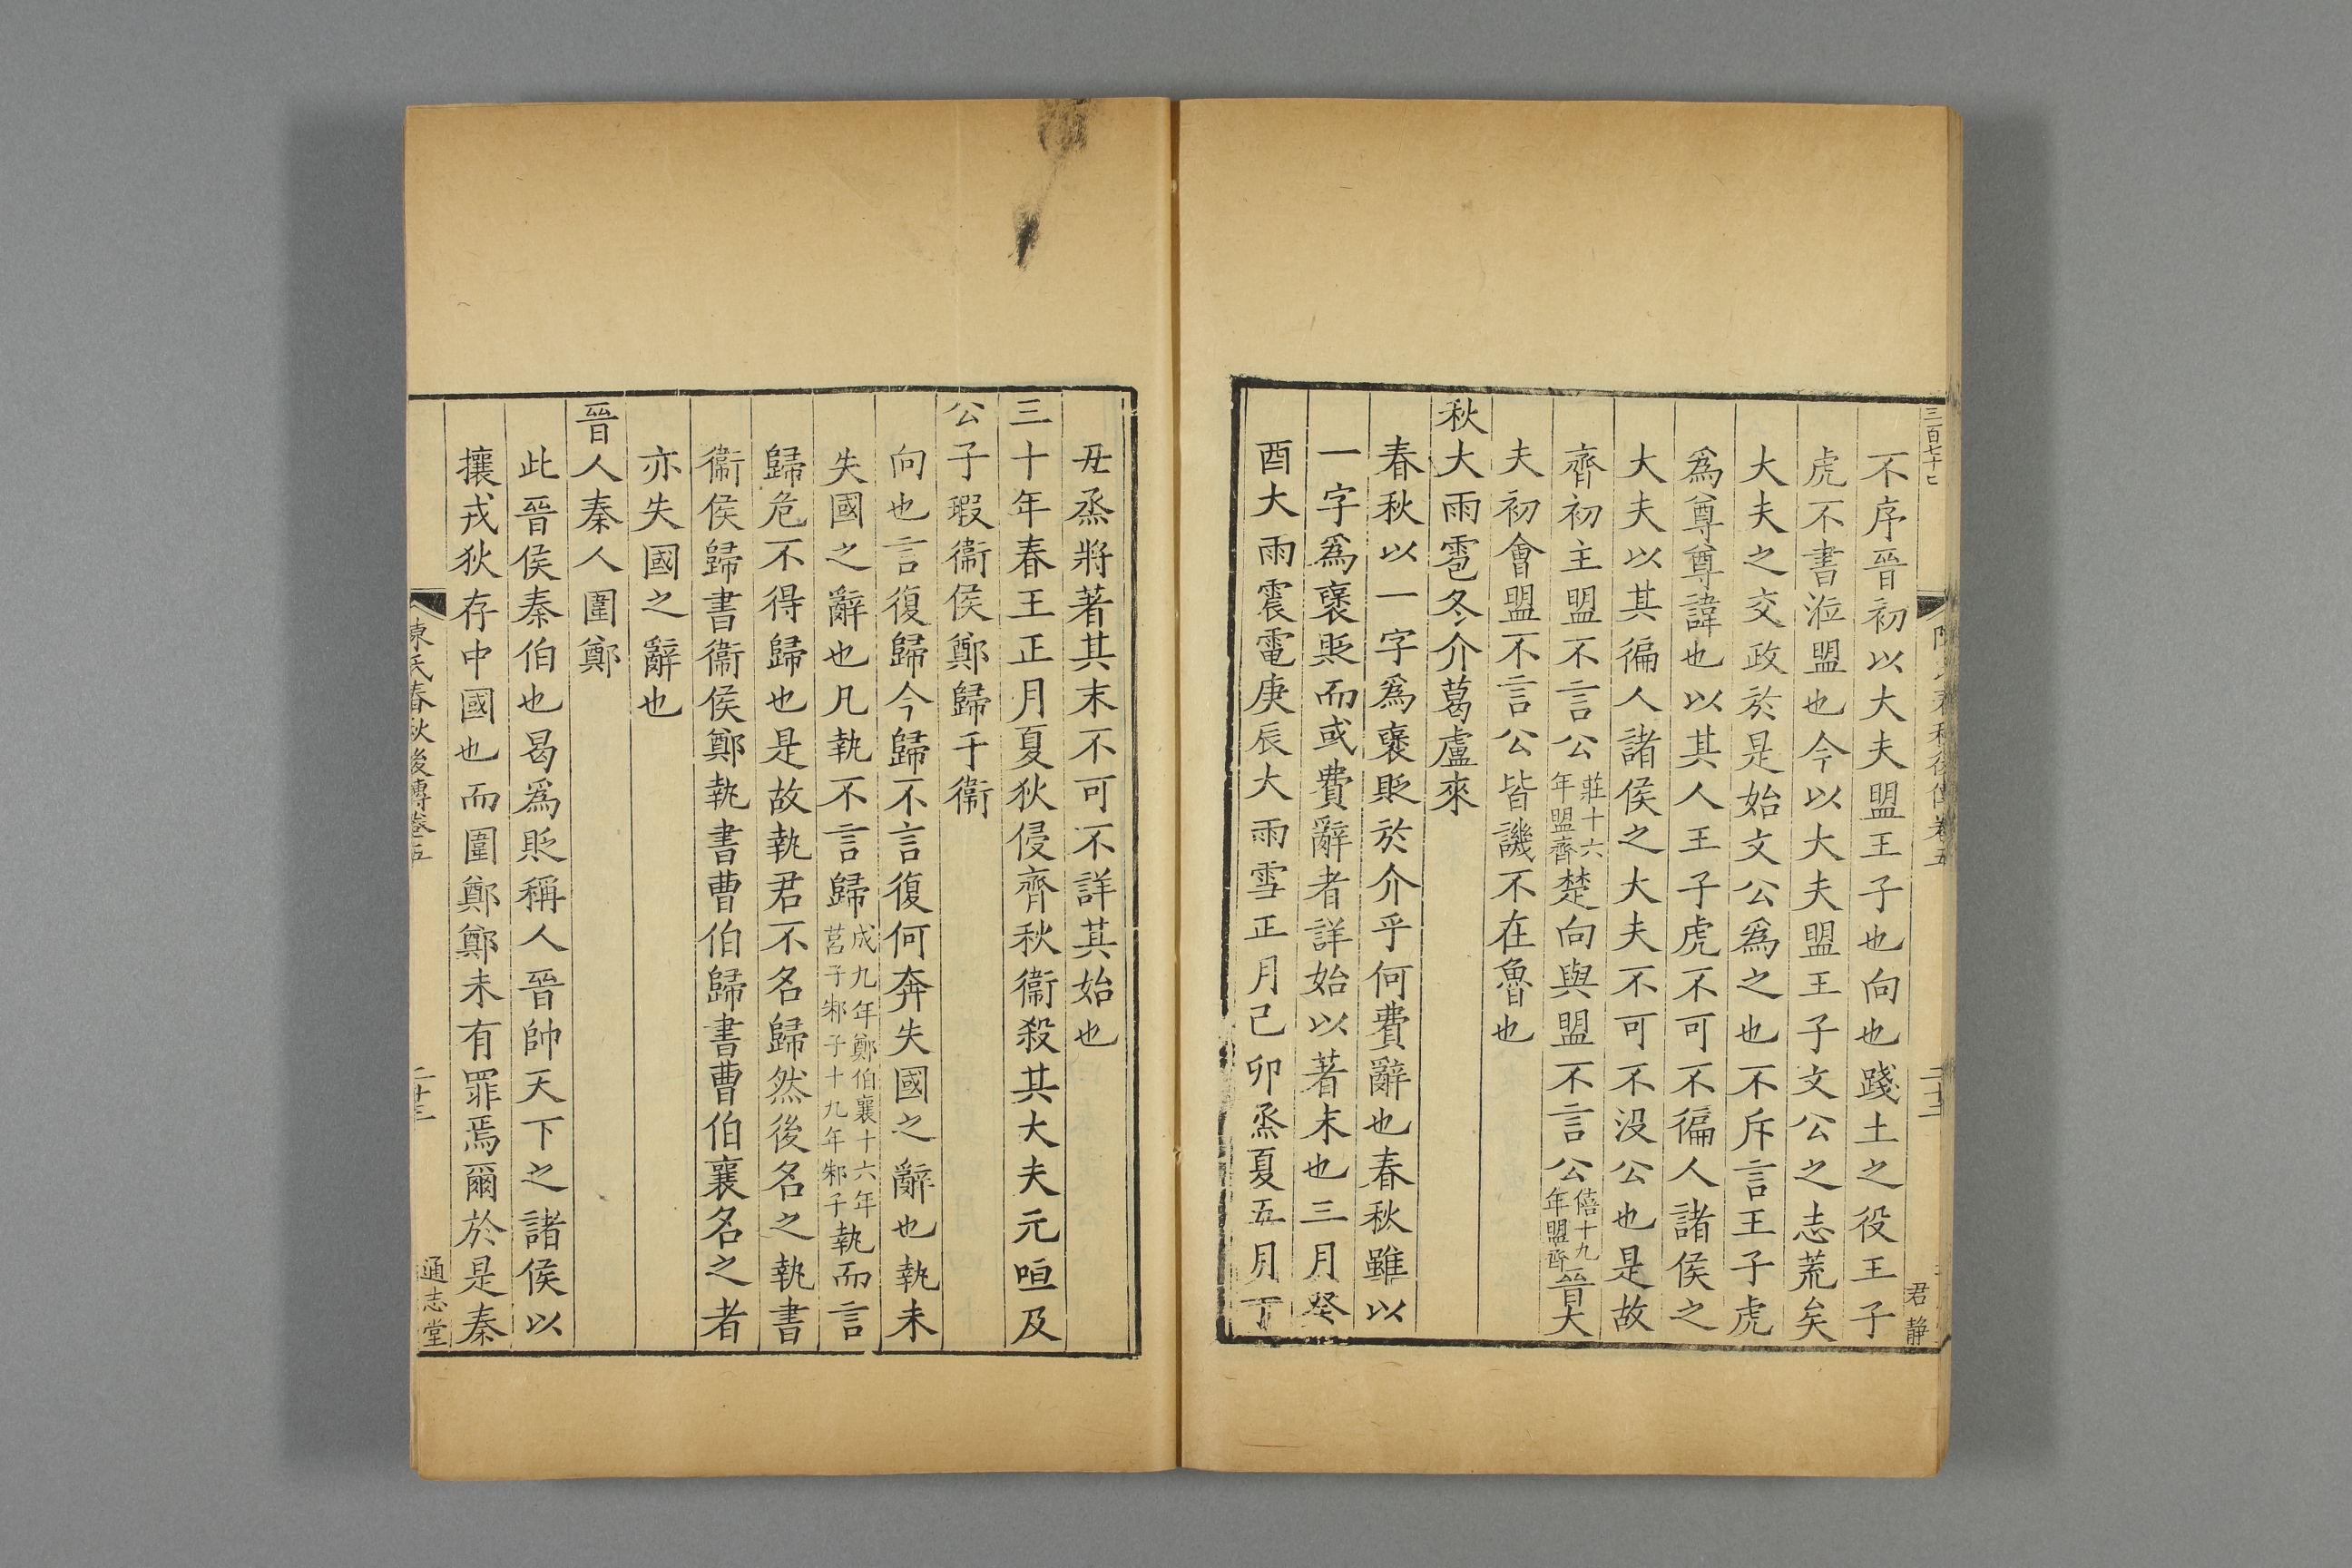 不序晉初以大夫盟王子也向也踐土之役王子
虎不書涖盟也今以大夫盟王子文公之志荒矣
大夫之交政於是始文公爲之也不斥言王子虎
爲尊尊諱也以其人王子虎不可不徧人諸侯之
大夫以其徧人諸侯之大夫不可不没公也是故
齊初主盟不言公莊十六年盟齊楚向與盟不言公僖十九年盟齊晉大
夫初會盟不言公皆譏不在魯也
秋大雨雹冬介葛盧來
春秋以一字爲襃貶於介乎何費辭也春秋雖以
一字爲襃貶而或費辭者詳始以著末也三月癸
酉大雨震電庚辰大雨雪正月己卯烝夏五月丁
丑烝將著其末不可不詳其始也
三十年春王正月夏狄侵齊秋衞殺其大夫元咺及
公子瑕衞侯鄭歸于衞
向也言復歸今歸不言復何奔失國之辭也執未
失國之辭也凡執不言歸成九年鄭伯襄十六年莒子邾子十九年邾子執而言
歸危不得歸也是故執君不名歸然後名之執書
衞侯歸書衞侯鄭執書曹伯歸書曹伯襄名之者
亦失國之辭也
晉人秦人圍鄭
此晉侯秦伯也曷爲貶稱人晉帥天下之諸侯以
攘戎狄存中國也而圍鄭鄭未有罪焉爾於是秦
陳氏春秋後傳卷五
通志堂
三百七十七
君靜